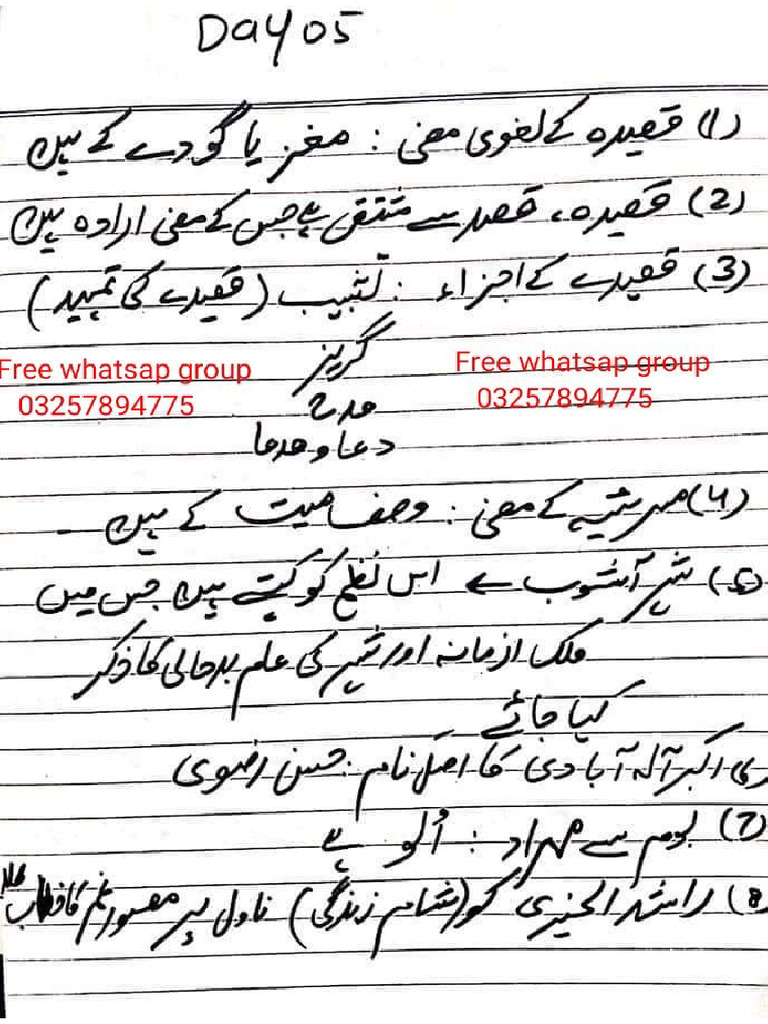 Day 05
(1) قصیدہ کے لغوی معنی : مغز یا گودے کے ہیں
(2) قصیدہ، قصد سے مشتق ہے جس کے معنی ارادہ ہیں
(3) قصیدے کے اجزاء : تشبیب (قصیدے کی تمہید)
گریز
Free whatsap group
Free whatsap group
03257894775
03257894775
مدح
دعا و مدعا
(4) مرثیہ کے معنی : وصف میت کے ہیں
(5) شہر آشوب ← اس نظم کو کہتے ہیں جس میں
ملک ازمانہ اور شہر کی علم بدحالی کا ذکر
کیا جائے
اکبر آلہ آبادی کا اصل نام : حسن رضوی
(7) بوم سے مراد : اُلو ہے
(8) راشد الخیری کو (شام زندگی) ناول پر مصور غم کا خطاب ملا